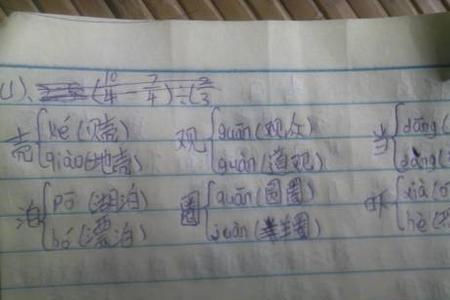 (1)、 (10/4 7/4)÷(2/3
ké (贝壳) guān (观众) dāng (
壳 { 观 { 当 {
qiào (地壳) guàn (道观) dàng (
pō (湖泊) quān (圆圈) xià (
泊 { 圈 { 吓 {
bó (漂泊) juàn (羊圈) hè (